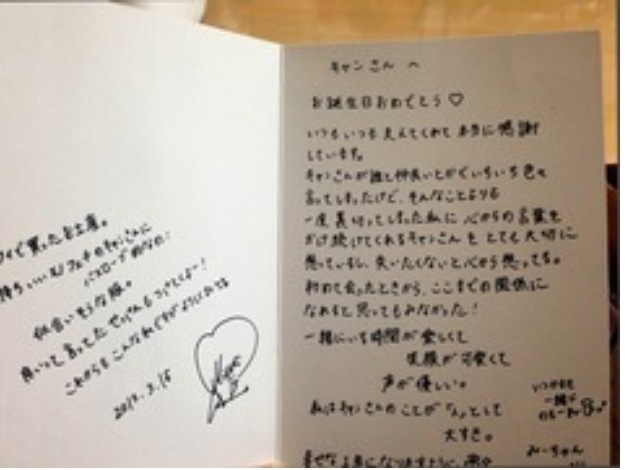 キャンさん へ
お誕生日おめでとう♡
いつもいつも支えてくれて本当に感謝
しています。
キャンさんが誰と仲良いとかでいちいち色々
言ってしまったけど、そんなことよりも
一度裏切ってしまった私に 心からの言葉を
かけ続けてくれるキャンさんを とても大切に
思っているし、失いたくないと心から思ってる。
初めて会ったときから、ここまでの関係に
なれると思ってもみなかった!
一緒にいる時間が愛しくて
笑顔が可愛くて
声が優しい。
私はキャンさんのことが 人として
大すき。
いつかまた
一緒に
みーちゃん
で買ったお土産。
キャンさんに
バスローブ的なの!
似合いそうな服。
良いって言ってた せっけんも
これからもこんな私ですがよろしくね
2017.3.16